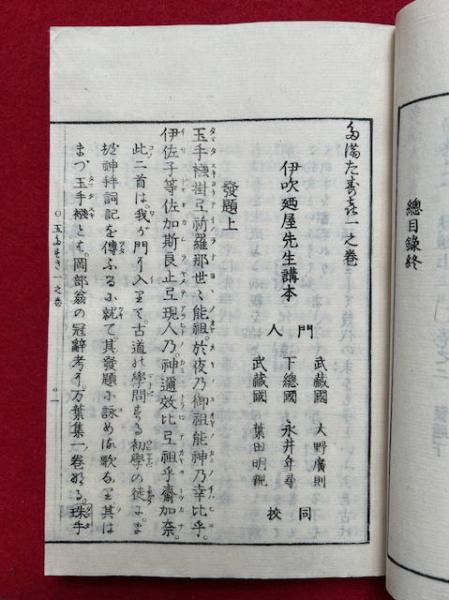 總目錄終
多滿た壽喜一之卷
伊吹廼屋先生講本
門人
武藏國 大野廣則
下總國 永井年尋
武藏國
同校
發題上
玉手襁掛互祈羅那世々能祖。於夜乃御祖能神乃幸比乎。
伊佐子等佐加斯良止互現人乃。神邇效比互祖乎齋加奈。
此二首は。我が門に入て。古道の學問する初學の徒に。ま
神拜詞記を傳ふるに就て。其發題に詠める歌なり。其は
まづ玉手襁とは。岡部翁の冠辭考に。万葉集一卷なる。珠手